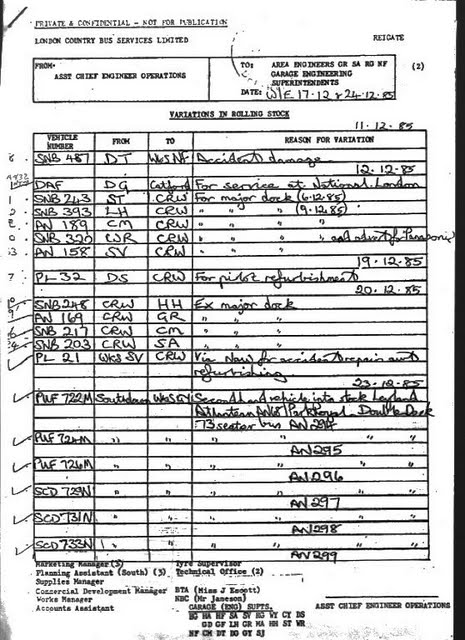 PRIVATE & CONFIDENTIAL - NOT FOR PUBLICATION
LONDON COUNTRY BUS SERVICES LIMITED REIGATE
FROM: TO: AREA ENGINEERS GR SA RG NF (2)
ASST CHIEF ENGINEER OPERATIONS GARAGE ENGINEERING
SUPERINTENDENTS
DATE: W/E 17.12 & 24.12.85
VARIATIONS IN ROLLING STOCK
11.12.85
VEHICLE NUMBER FROM TO REASON FOR VARIATION
SNB 487 DT WKS NF Accident damage
12.12.85
DAF DG Catford For service at National London
SNB 243 ST CRW For major dock (6.12.85)
SNB 393 LH CRW " " " (9.12.85)
AN 189 CM CRW " " "
SNB 320 WR CRW " " " and advert for Panasonic
AN 158 SV CRW " " "
19.12.85
PL 32 DS CRW For pilot refurbishment
20.12.85
SNB 248 CRW HH Ex major dock
AN 169 CRW GR " " "
SNB 217 CRW CM " " "
SNB 203 CRW SA " " "
PL 21 WKS SV CRW Via Now for accident repair and
refurbishing
23.12.85
PUF 722M Southdown WKS GY Second hand vehicle into stock Leyland
Atlantean AN68 Park Royal Double Deck
73 seater bus AN 294
PUF 724M " " " " "
AN 295
PUF 726M " " " " "
AN 296
SCD 729N " " " " "
AN 297
SCD 731N " " " " "
AN 298
SCD 733N " " " " "
AN 299
Marketing Manager (3) Tyre Supervisor
Planning Assistant (South) (3) Technical Office (2)
Supplies Manager
Commercial Development Manager BTA (Miss J Escott)
Works Manager NBC (Mr Jameson)
Accounts Assistant GARAGE (ENG) SUPTS. ASST CHIEF ENGINEER OPERATIONS
RG HA HF SA SV RG WY CY DS
GD GF LH GR MA HH ST WR
NF CM DT DO GY SJ